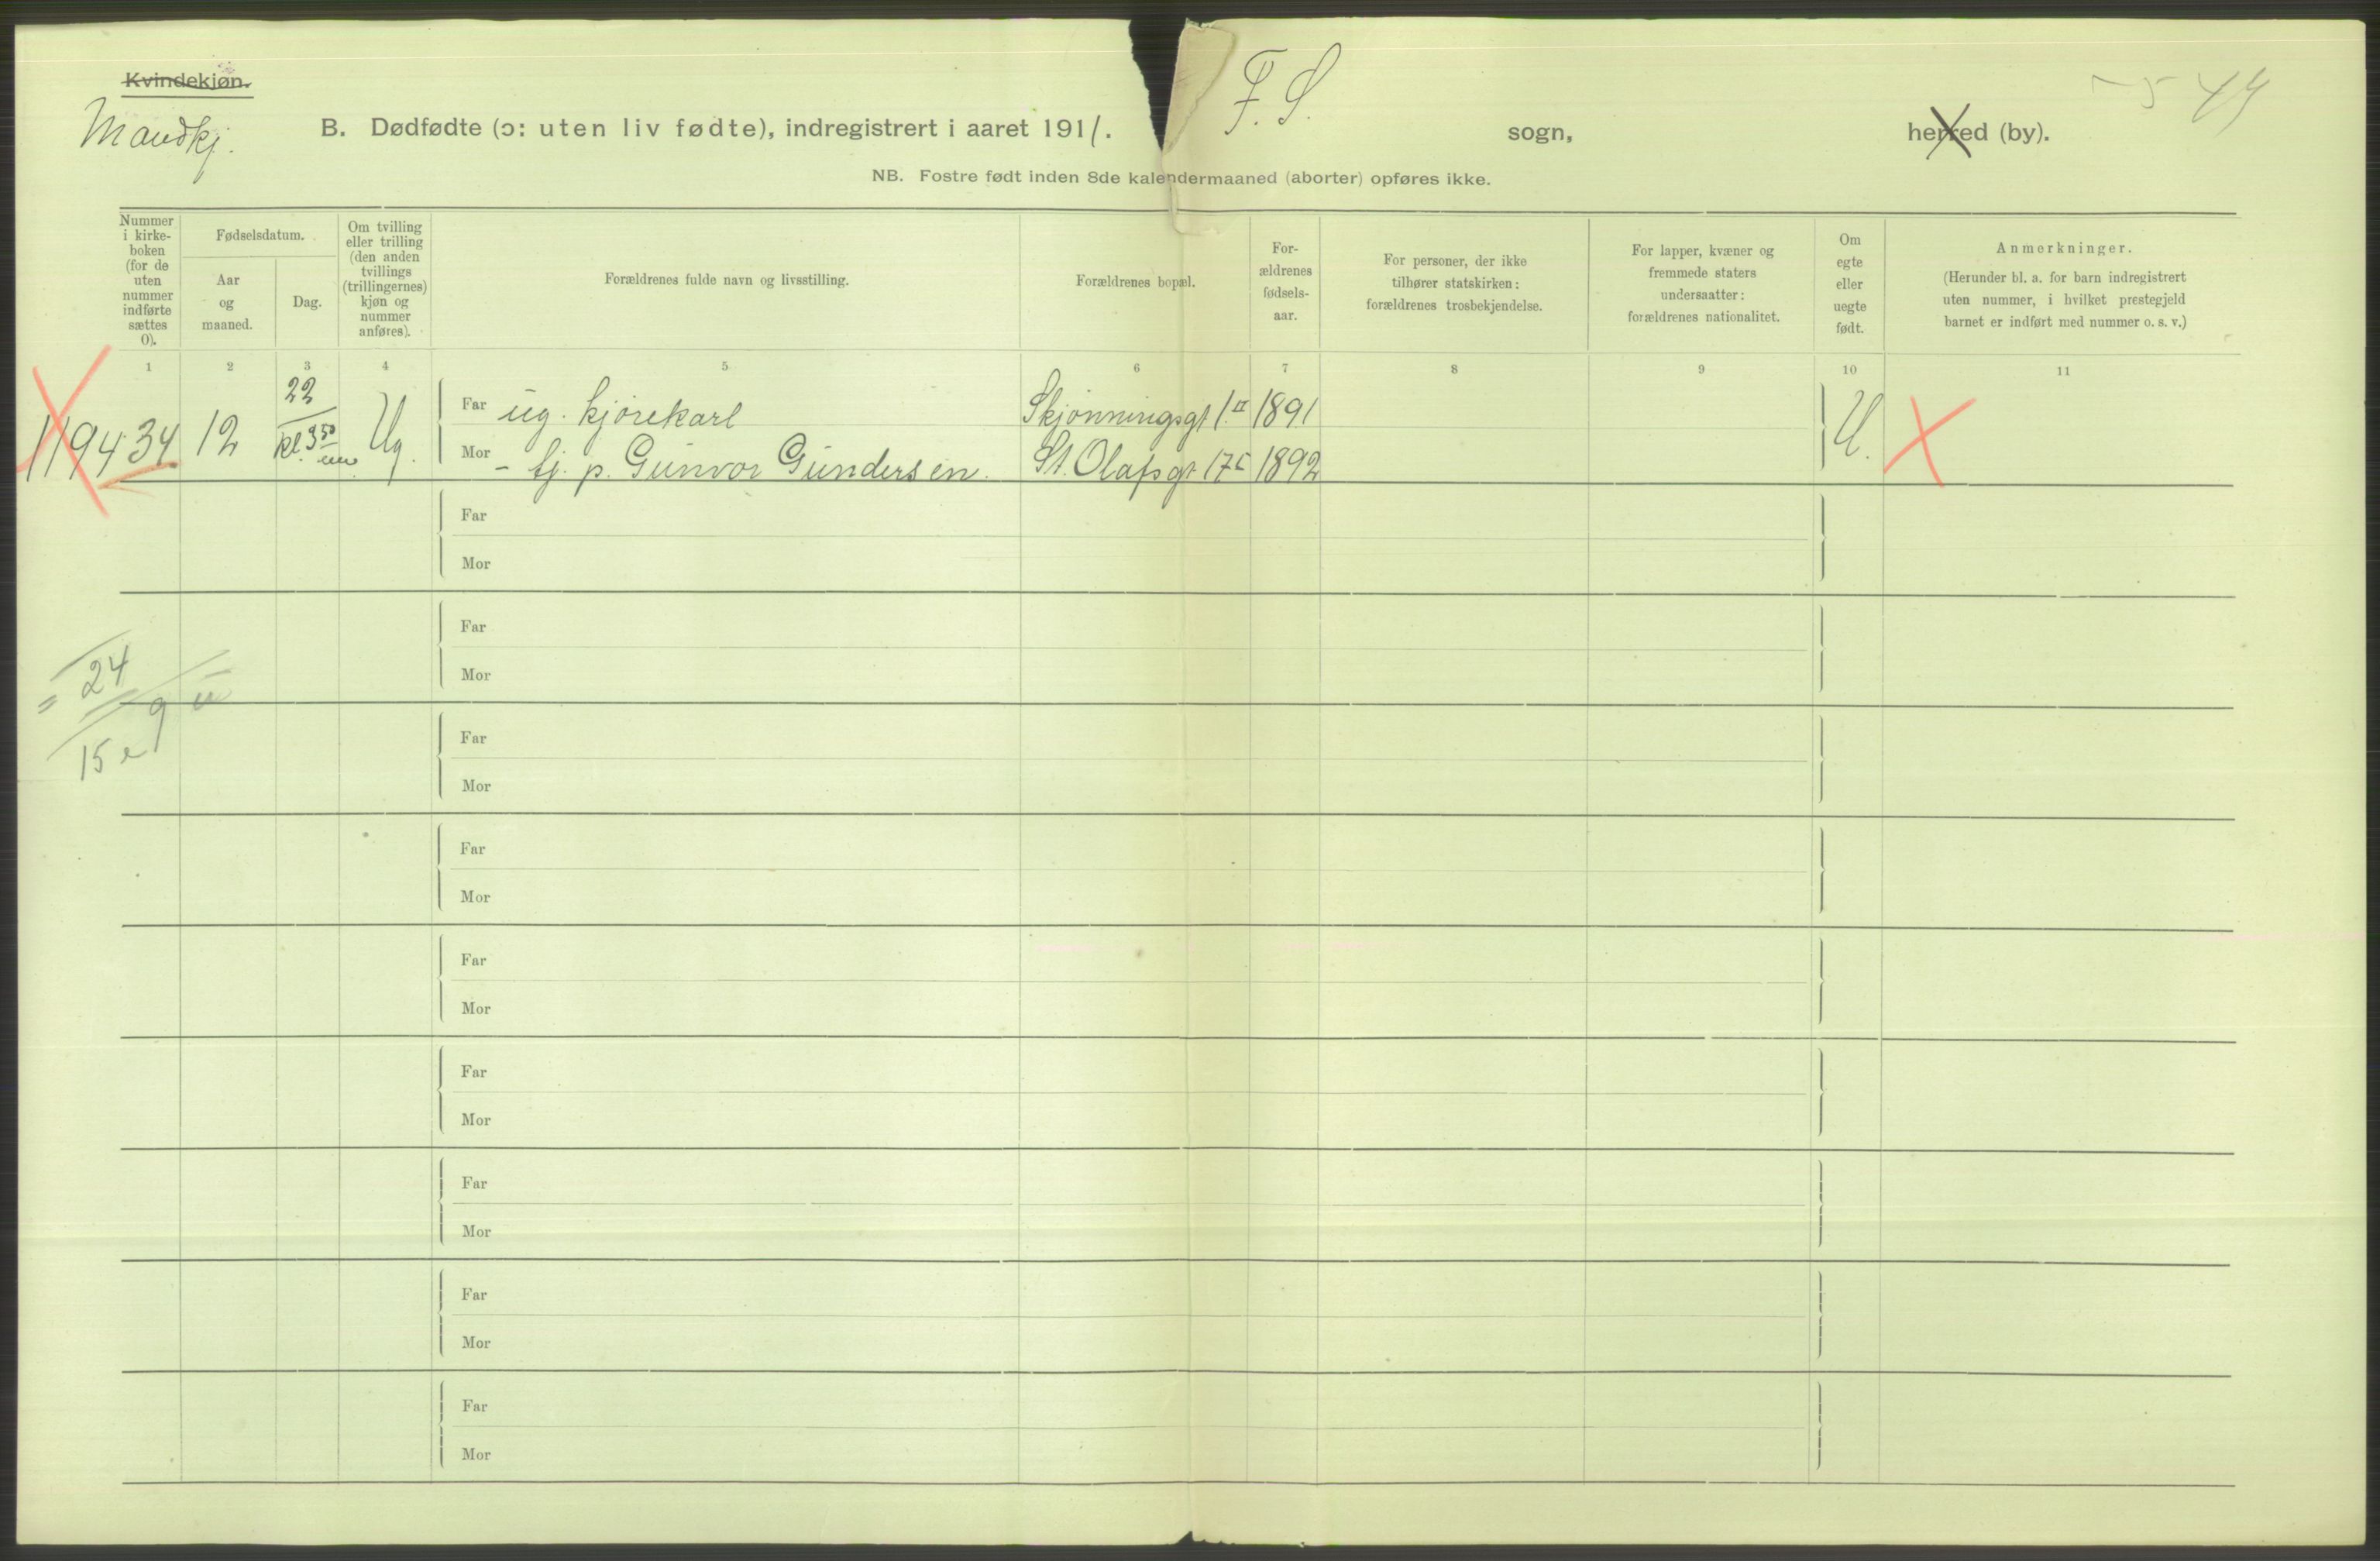 Kvindekjøn.
Mandkj.
F. S.
49
B. Dødfødte (ɔ: uten liv fødte), indregistrert i aaret 1911. sogn, herred (by).
NB. Fostre født inden 8de kalendermaaned (aborter) opføres ikke.
Nummer i kirke-boken (for de uten nummer indførte sættes 0).
Fødselsdatum.
Aar og maaned.
Dag.
Om tvilling eller trilling (den anden tvillings (trillingernes) kjøn og nummer anføres).
Forældrenes fulde navn og livsstilling.
Forældrenes bopæl.
For-ældrenes fødsels-aar.
For personer, der ikke tilhører statskirken: forældrenes trosbekjendelse.
For lapper, kvæner og fremmede staters undersaatter: forældrenes nationalitet.
Om egte eller uegte født.
Anmerkninger.
(Herunder bl. a. for barn indregistrert uten nummer, i hvilket prestegjeld barnet er indført med nummer o. s. v.)
1 2 3 4 5 6 7 8 9 10 11
22
Far ug. kjørekarl Skjønningsgt 1 II 1891
1194 34 12 kl. 3 50 em Ug. U.
Mor - tj. p. Gunvor Gundersen. St. Olafsgt 17 c 1892
Far
Mor
Far
24
Mor
9 u
Far
15 e
Mor
Far
Mor
Far
Mor
Far
Mor
Far
Mor
Far
Mor
Far
Mor